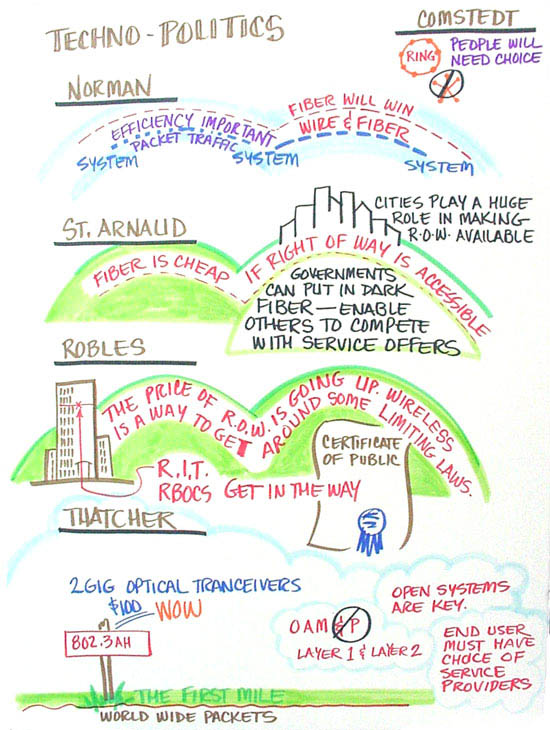 TECHNO-POLITICS
COMSTEDT
RING
PEOPLE WILL
NEED CHOICE
NORMAN
EFFICIENCY IMPORTANT
PACKET TRAFFIC
FIBER WILL WIN
WIRE & FIBER
SYSTEM
SYSTEM
SYSTEM
CITIES PLAY A HUGE
ROLE IN MAKING
R.O.W. AVAILABLE
ST. ARNAUD
FIBER IS CHEAP
IF RIGHT OF WAY IS ACCESSIBLE
GOVERNMENTS
CAN PUT IN DARK
FIBER — ENABLE
OTHERS TO COMPETE
WITH SERVICE OFFERS
ROBLES
THE PRICE OF R.O.W. IS GOING UP. WIRELESS
IS A WAY TO GET AROUND SOME LIMITING LAWS.
R.I.T.
RBOCS GET IN THE WAY
CERTIFICATE
OF PUBLIC
THATCHER
2GIG OPTICAL TRANCEIVERS
$100 WOW
802.3AH
THE FIRST MILE
WORLD WIDE PACKETS
OAM & P
LAYER 1 & LAYER 2
OPEN SYSTEMS
ARE KEY.
END USER
MUST HAVE
CHOICE OF
SERVICE
PROVIDERS